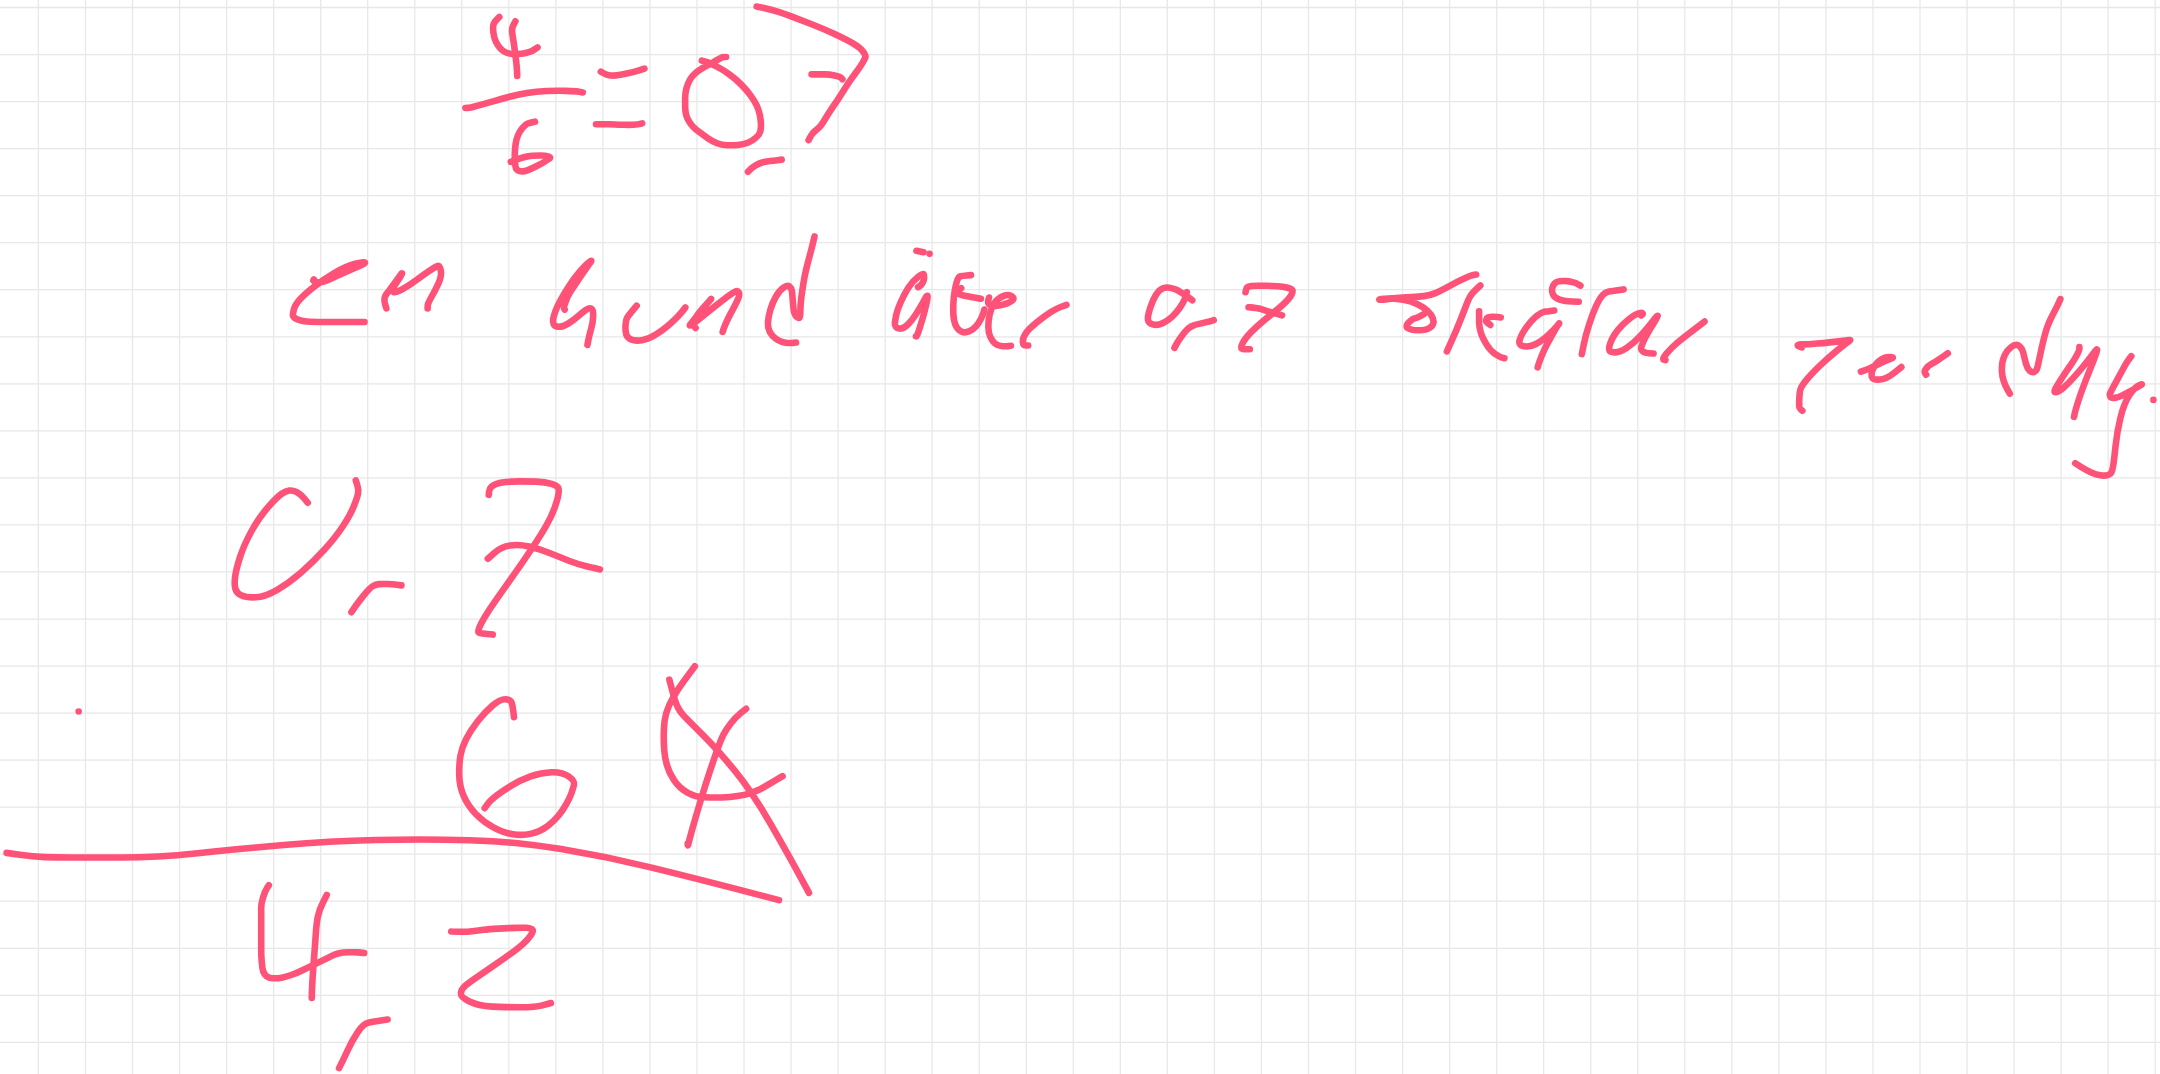 4/6 = 0,7
En hund äter 0,7 skålar per dag.
0,7
6
4,2